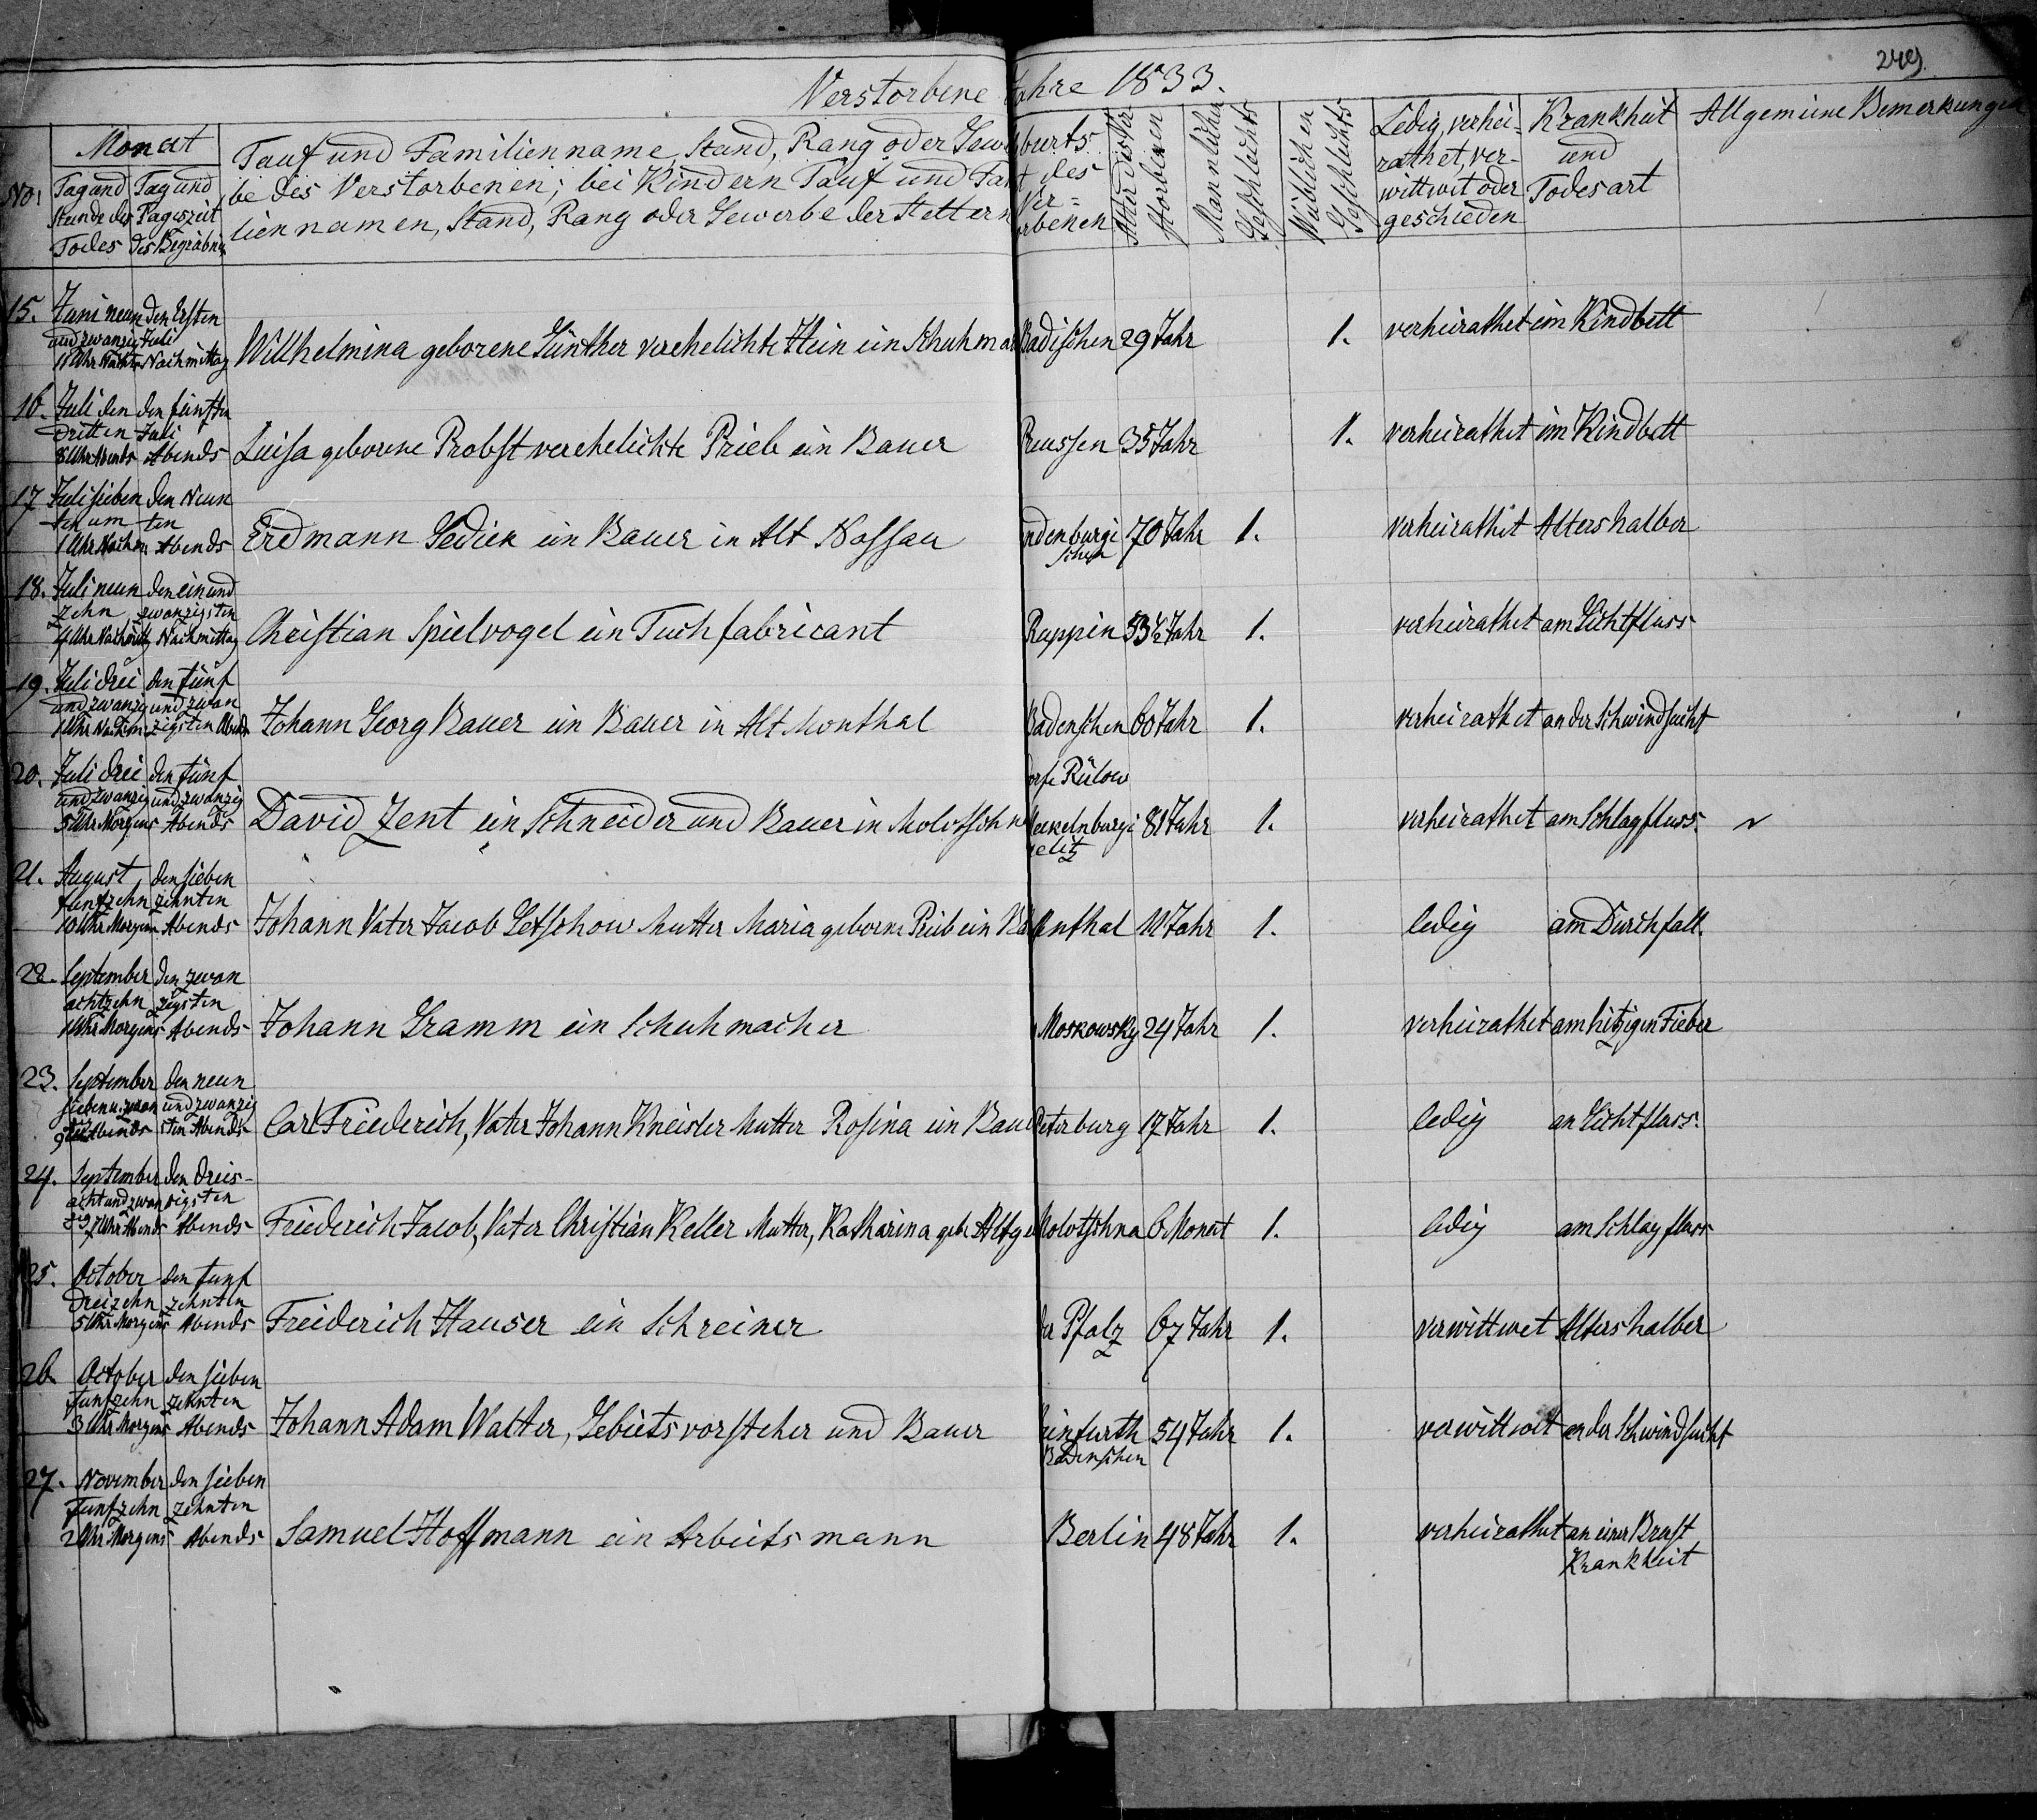 249.
Verstorbene Jahre 1833.
No:
Monat
Tag und Stunde des Todes
Tag und Tageszeit des Begräbni
Tauf und Familienname, Stand, Rang oder Gew
be des Verstorbenen; bei Kindern Tauf und Fa
liennamen, Stand, Rang oder Gewerbe der Aeltern
burts
t des
Ver=
orbenen
Alter des Ver
storbenen
Mannlichen
Geschlechts
Weiblichen
Geschlechts
Ledig, verhei-
rathet, ver-
wittwit oder
geschieden
Krankheit
und
Todesart
Allgemeine Bemerkungen
15. Juni neun den Ersten
und zwanzig Juli
11 Uhr Nachts Nachmittag Willhelmina geborene Günther verehelichte Stein ein Schuhma Badischen 29 Jahr 1. verheirathet im Kindbett
16. Juli den den fünften
dritten Juli
8 Uhr Abends Abends Luisa geborene Probst verehelichte Prieb ein Bauer Reussen 35 Jahr 1. verheirathet im Kindbett
17 Juli sieben den Neun
ten um ten
1 Uhr Nachm Abends Erdmann Gedick ein Bauer in Alt Nassau ndenburgi 70 Jahr 1. verheirathet Altershalber
schen
18. Juli neun den ein und
zehn zwanzigsten
4 Uhr Nachmitt Nachmittag Christian Spielvogel ein Tuchfabricant Ruppin 53½ Jahr 1. verheirathet am Lichtfluss
19. Juli drei den fünf
und zwanzig und zwan
1 Uhr Nachm zigsten Abends Johann Georg Bauer ein Bauer in Alt Monthal Badenschen 60 Jahr 1. verheirathet an der Schwindsucht
20. Juli drei den fünf
und zwanzig und zwanzig
orfe Rülow
5 Uhr Morgens Abends David Zent ein Schneider und Bauer in Molotschn Meckelnburgi 81 Jahr 1. verheirathet am Schlagfluss.
elitz
21. August den sieben
funfzehn zehnten
10 Uhr Morgen Abends Johann Vater Jacob Letschow Mutter Maria geborne Prieb ein Ba nthal 11 Jahr 1. ledig am Durchfall.
22. September den zwan
achtzehn zigsten
1 Uhr Morgens Abends Johann Gramm ein Schuhmacher Moskowsky 24 Jahr 1. verheirathet am hitzigen Fieber
23. September den neun
sieben u. zwan und zwanzig
9 Uhr Abends sten Abends Carl Friederich, Vater Johann Kneisler Mutter Rosina ein Baue Peterburg 17 Jahr 1. ledig an Lichtfluss.
24. September den dreis-
acht und zwan sigsten
zig 7 Uhr Abends Abends Friederich Jacob, Vater Christian Keller Mutter, Katharina geb. Molotschna 6 Monat 1. ledig am Schlagfluss
25. October den funf
dreizehn zehnten
5 Uhr Morgens Abends Freiderich Hauser ein Schreiner er Pfalz 67 Jahr 1. verwittwet Altershalber
26. October den sieben
funfzehn zehnten
3 Uhr Morgens Abends Johann Adam Walter, Gebietsvorsteher und Bauer einfurth 54 Jahr 1. verwittwet an der Schwindsucht
Badenschen
27. November den sieben
funfzehn zehnten
2 Uhr Morgens Abends Samuel Hoffmann ein Arbeitsmann Berlin 48 Jahr 1. verheirathet an einer Brust
Krankheit